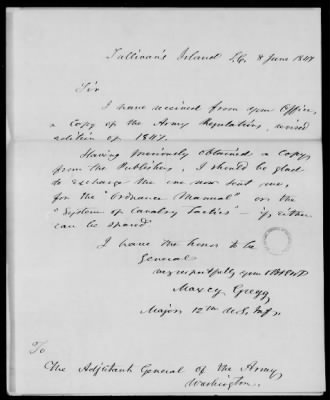 Sullivan's Island S.C. 8 June 1848
Sir
I have received from your Office,
a Copy of the Army Regulations, revised
edition of 1847.
Having previously obtained a Copy
from the Publishers, I should be glad
to exchange the one now sent me,
for the "Ordnance Manual" or the
"System of Cavalry Tactics" – if either
can be spared
I have the honor to be
General
very respectfully your obt svt
Maxcy Gregg
Major 12th U.S. Inf'y
To
The Adjutant General of the Army
Washington.